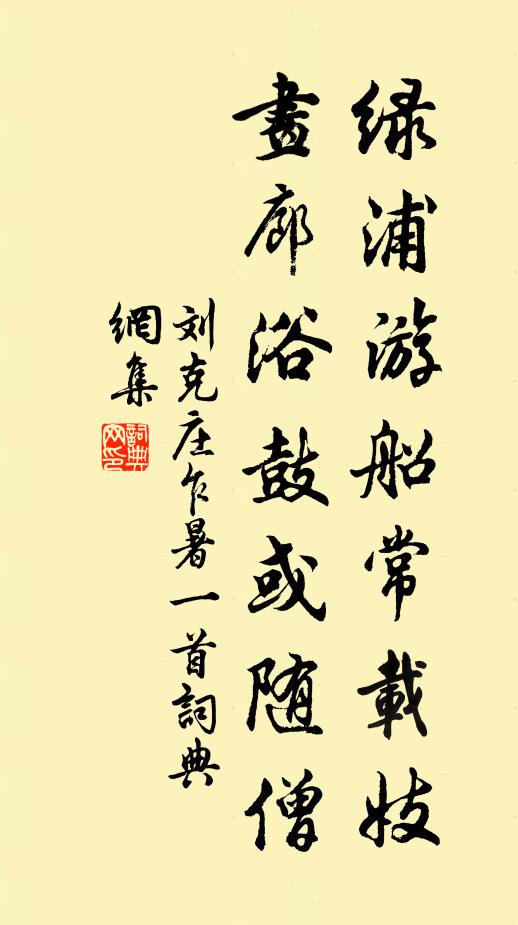 绿浦游船常載妓
畫廊浴鼓或随僧
刘克庄乍暑一首詞典
網集
詞典
网印